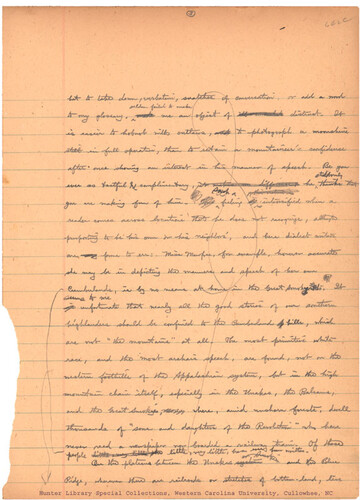 ②
but to take down, verbatim, snatches of conversation, or add a word
seldom failed to make
to my glossary, me an object of distrust. It
is easier to hobnob with outlaws, to photograph a moonshine
still in full operation, than to retain a mountaineer's confidence
after once showing an interest in his manner of speech. Be you
ever as tactful & complimentary, he thinks that
you are making fun of him: a feeling intensified when a
reader runs across locutions that he does not recognize, altho
purporting to be his own or his neighbors', and hence dialect writers
are prone to err. Miss Murfree, for example, however accurate
she may be in depicting the manners and speech of her own
Cumberlands, is by no means at home in the Great Smokies. It
seems to me
unfortunate that nearly all the good stories of our southern
highlanders should be confined to the Cumberland hills, which
are not "the mountains" at all. The most primitive white
race, and the most archaic speech, are found, not on the
western foothills of the Appalachian system, but in the high
mountain chain itself, especially in the Unakas, the Balsams,
and the Great Smokies, where, amid modern forests, dwell
thousands of "sons and daughters of the Revolution" who have
never read a newspaper nor boarded a railway train. Of these
people little, very little, has ever been written.
On the plateau between the Unakas and the Blue
Ridge, wherever there are railroads or stretches of bottom-land, there
Hunter Library Special Collections, Western Carolina University, Cullowhee, NC